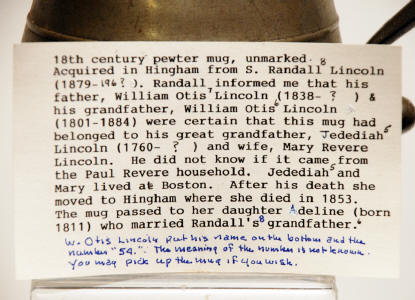 18th century pewter mug, unmarked. 8
Acquired in Hingham from S. Randall Lincoln
(1879-196?). Randall informed me that his
father, William Otis Lincoln (1838- ? ) &
his grandfather, William Otis Lincoln
(1801-1884) were certain that this mug had
belonged to his great grandfather, Jedediah 5
Lincoln (1760- ? ) and wife, Mary Revere
Lincoln. He did not know if it came from
the Paul Revere household. Jedediah 5 and
Mary lived at Boston. After his death she
moved to Hingham where she died in 1853.
The mug passed to her daughter Adeline (born
1811) who married Randall's 8 grandfather. 6
W. Otis Lincoln put his name on the bottom and the
number "54.". The meaning of the number is not known.
You may pick up the mug if you wish.